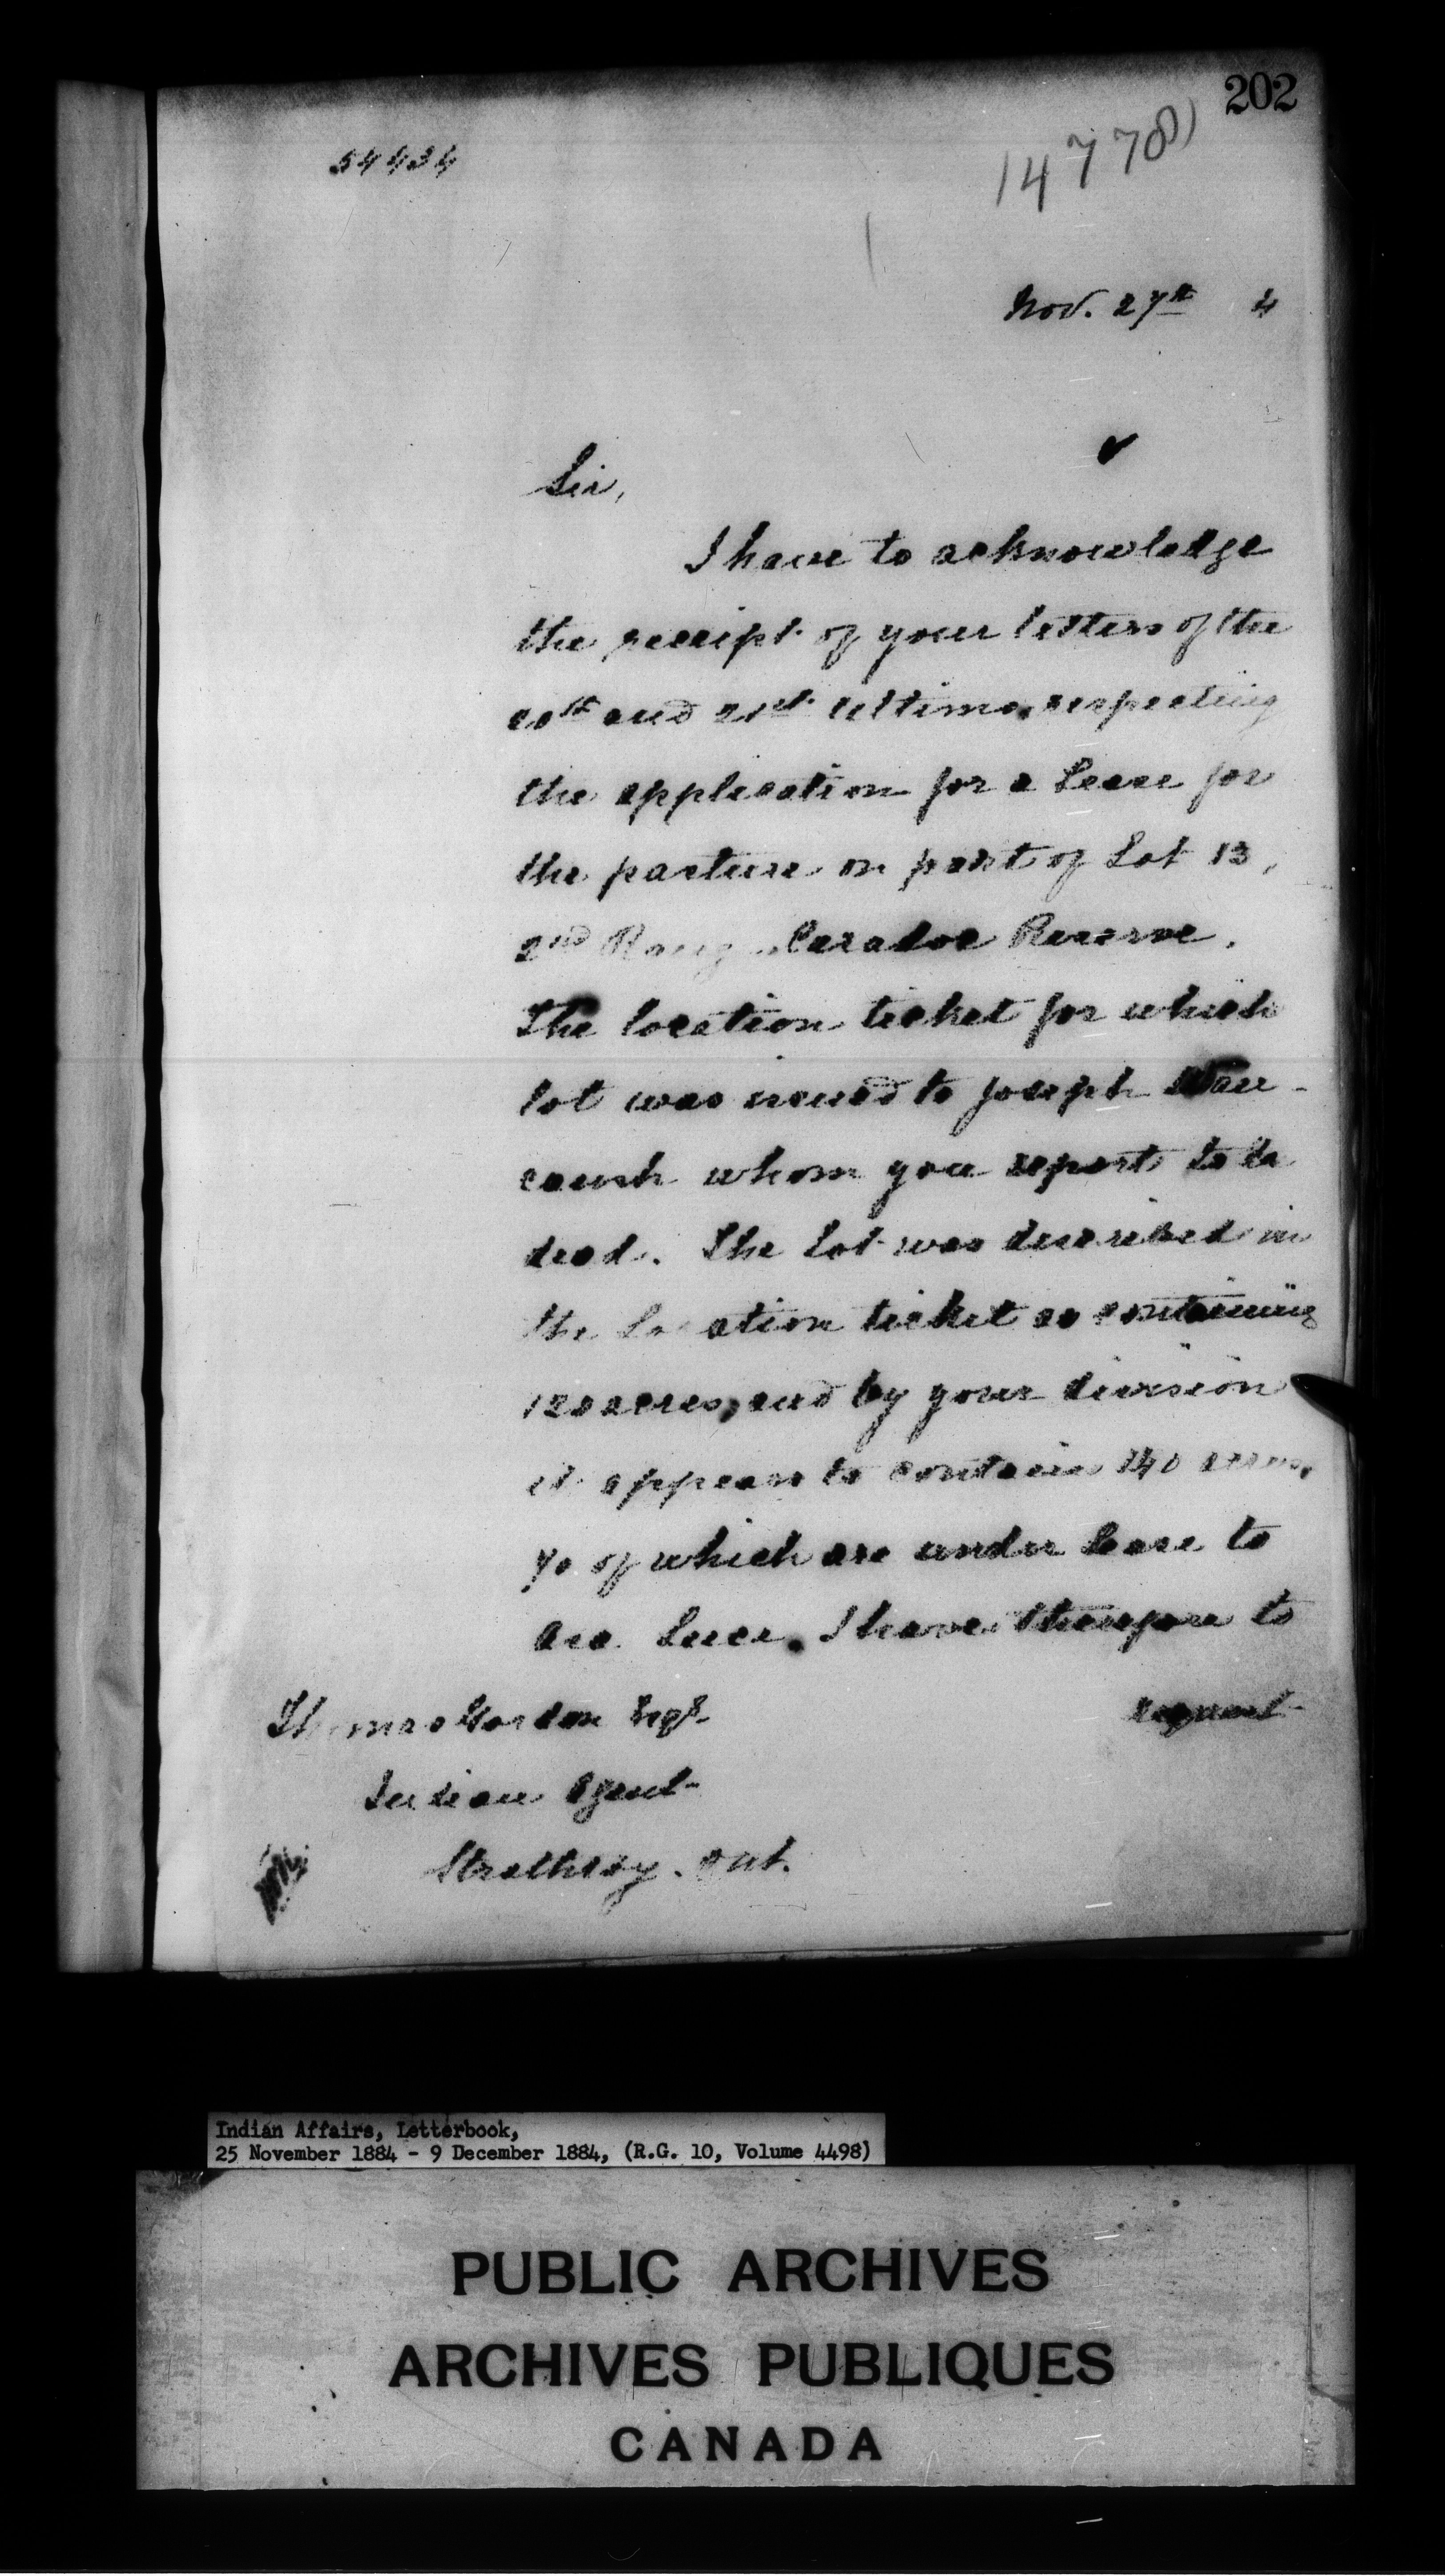 202
54434
14778)
Nov. 27th 4
Sir,
I have to acknowledge
the receipt of your letters of the
20th and 21st Ultimo, respecting
the application for a Lease for
the pasture on part of Lot 13,
2nd Range Caradoc Reserve.
The location ticket for which
lot was issued to Joseph Wau-
caush whom you report to be
dead. The Lot was described in
the Location ticket as containing
120 acres, and by your division
it appears to contain 140 acres,
70 of which are under lease to
Geo. I have therefore to
request
Thomas Gordon Esqr
Indian Agent
Strathroy. Ont.
Indian Affairs, Letterbook,
25 November 1884 - 9 December 1884, (R.G. 10, Volume 4498)
PUBLIC ARCHIVES
ARCHIVES PUBLIQUES
CANADA